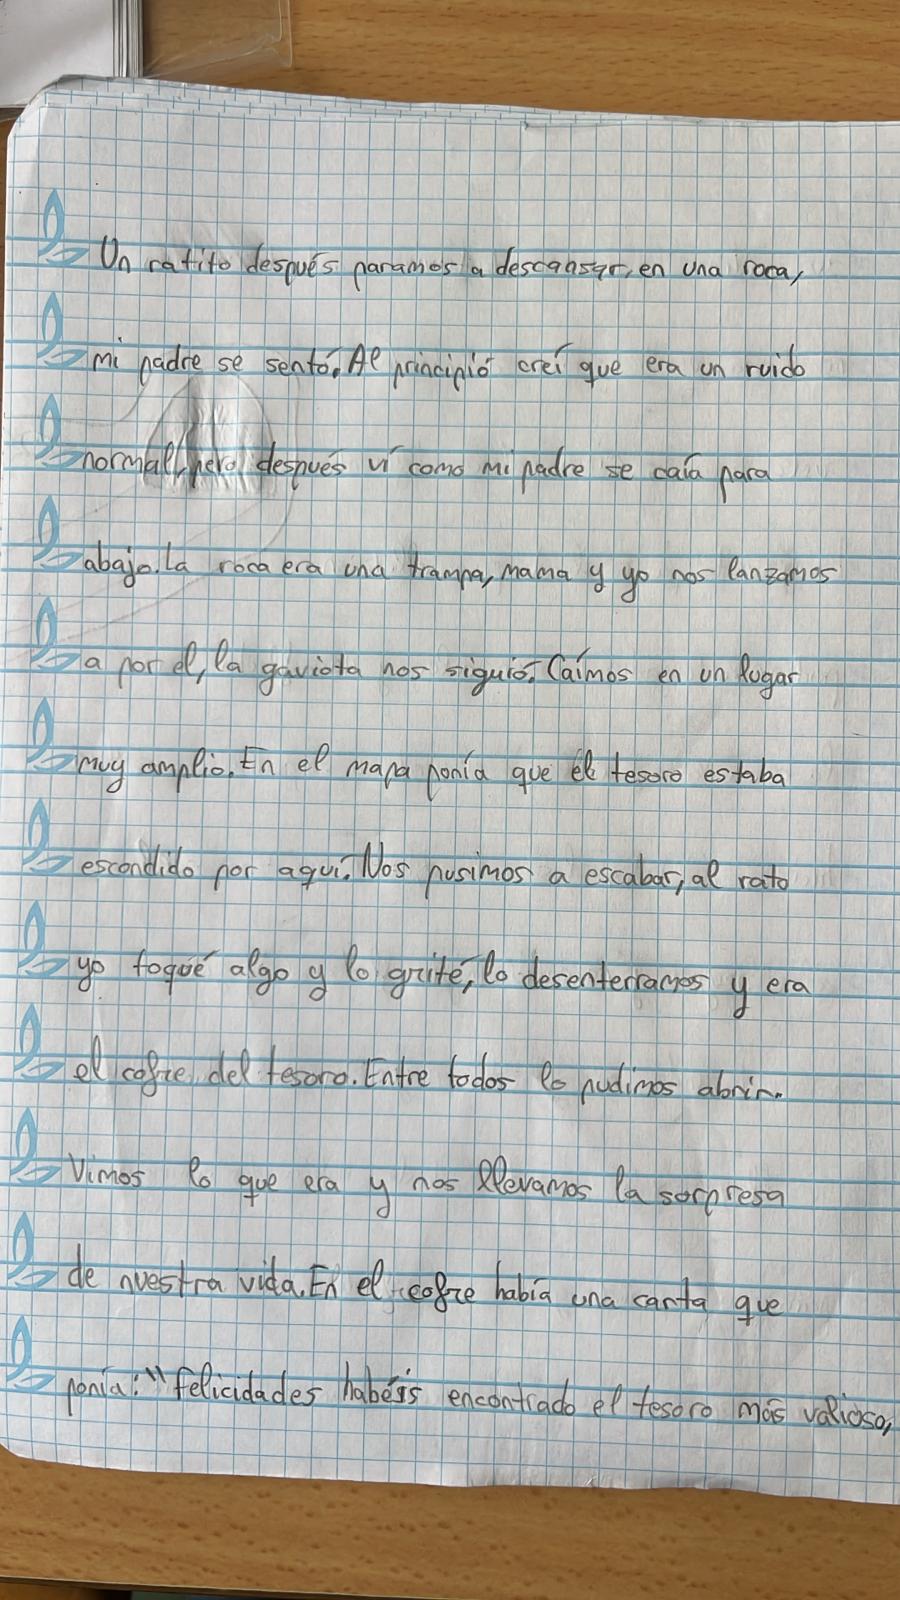 Un ratito después paramos a descansar, en una roca,
mi padre se sentó. Al principió creí que era un ruido
normal, pero después ví como mi padre se caía para
abajo. La roca era una trampa, mama y yo nos lanzamos
a por el, la gaviota nos siguió. Caímos en un lugar
muy amplio. En el mapa ponía que él tesoro estaba
escondido por aquí. Nos pusimos a escabar, al rato
yo toqué algo y lo grité, lo desenterramos y era
el cofre del tesoro. Entre todos lo pudimos abrir.
Vimos lo que era y nos llevamos la sorpresa
de nuestra vida. En el cofre había una carta que
ponía: "felicidades habéis encontrado el tesoro más valioso,